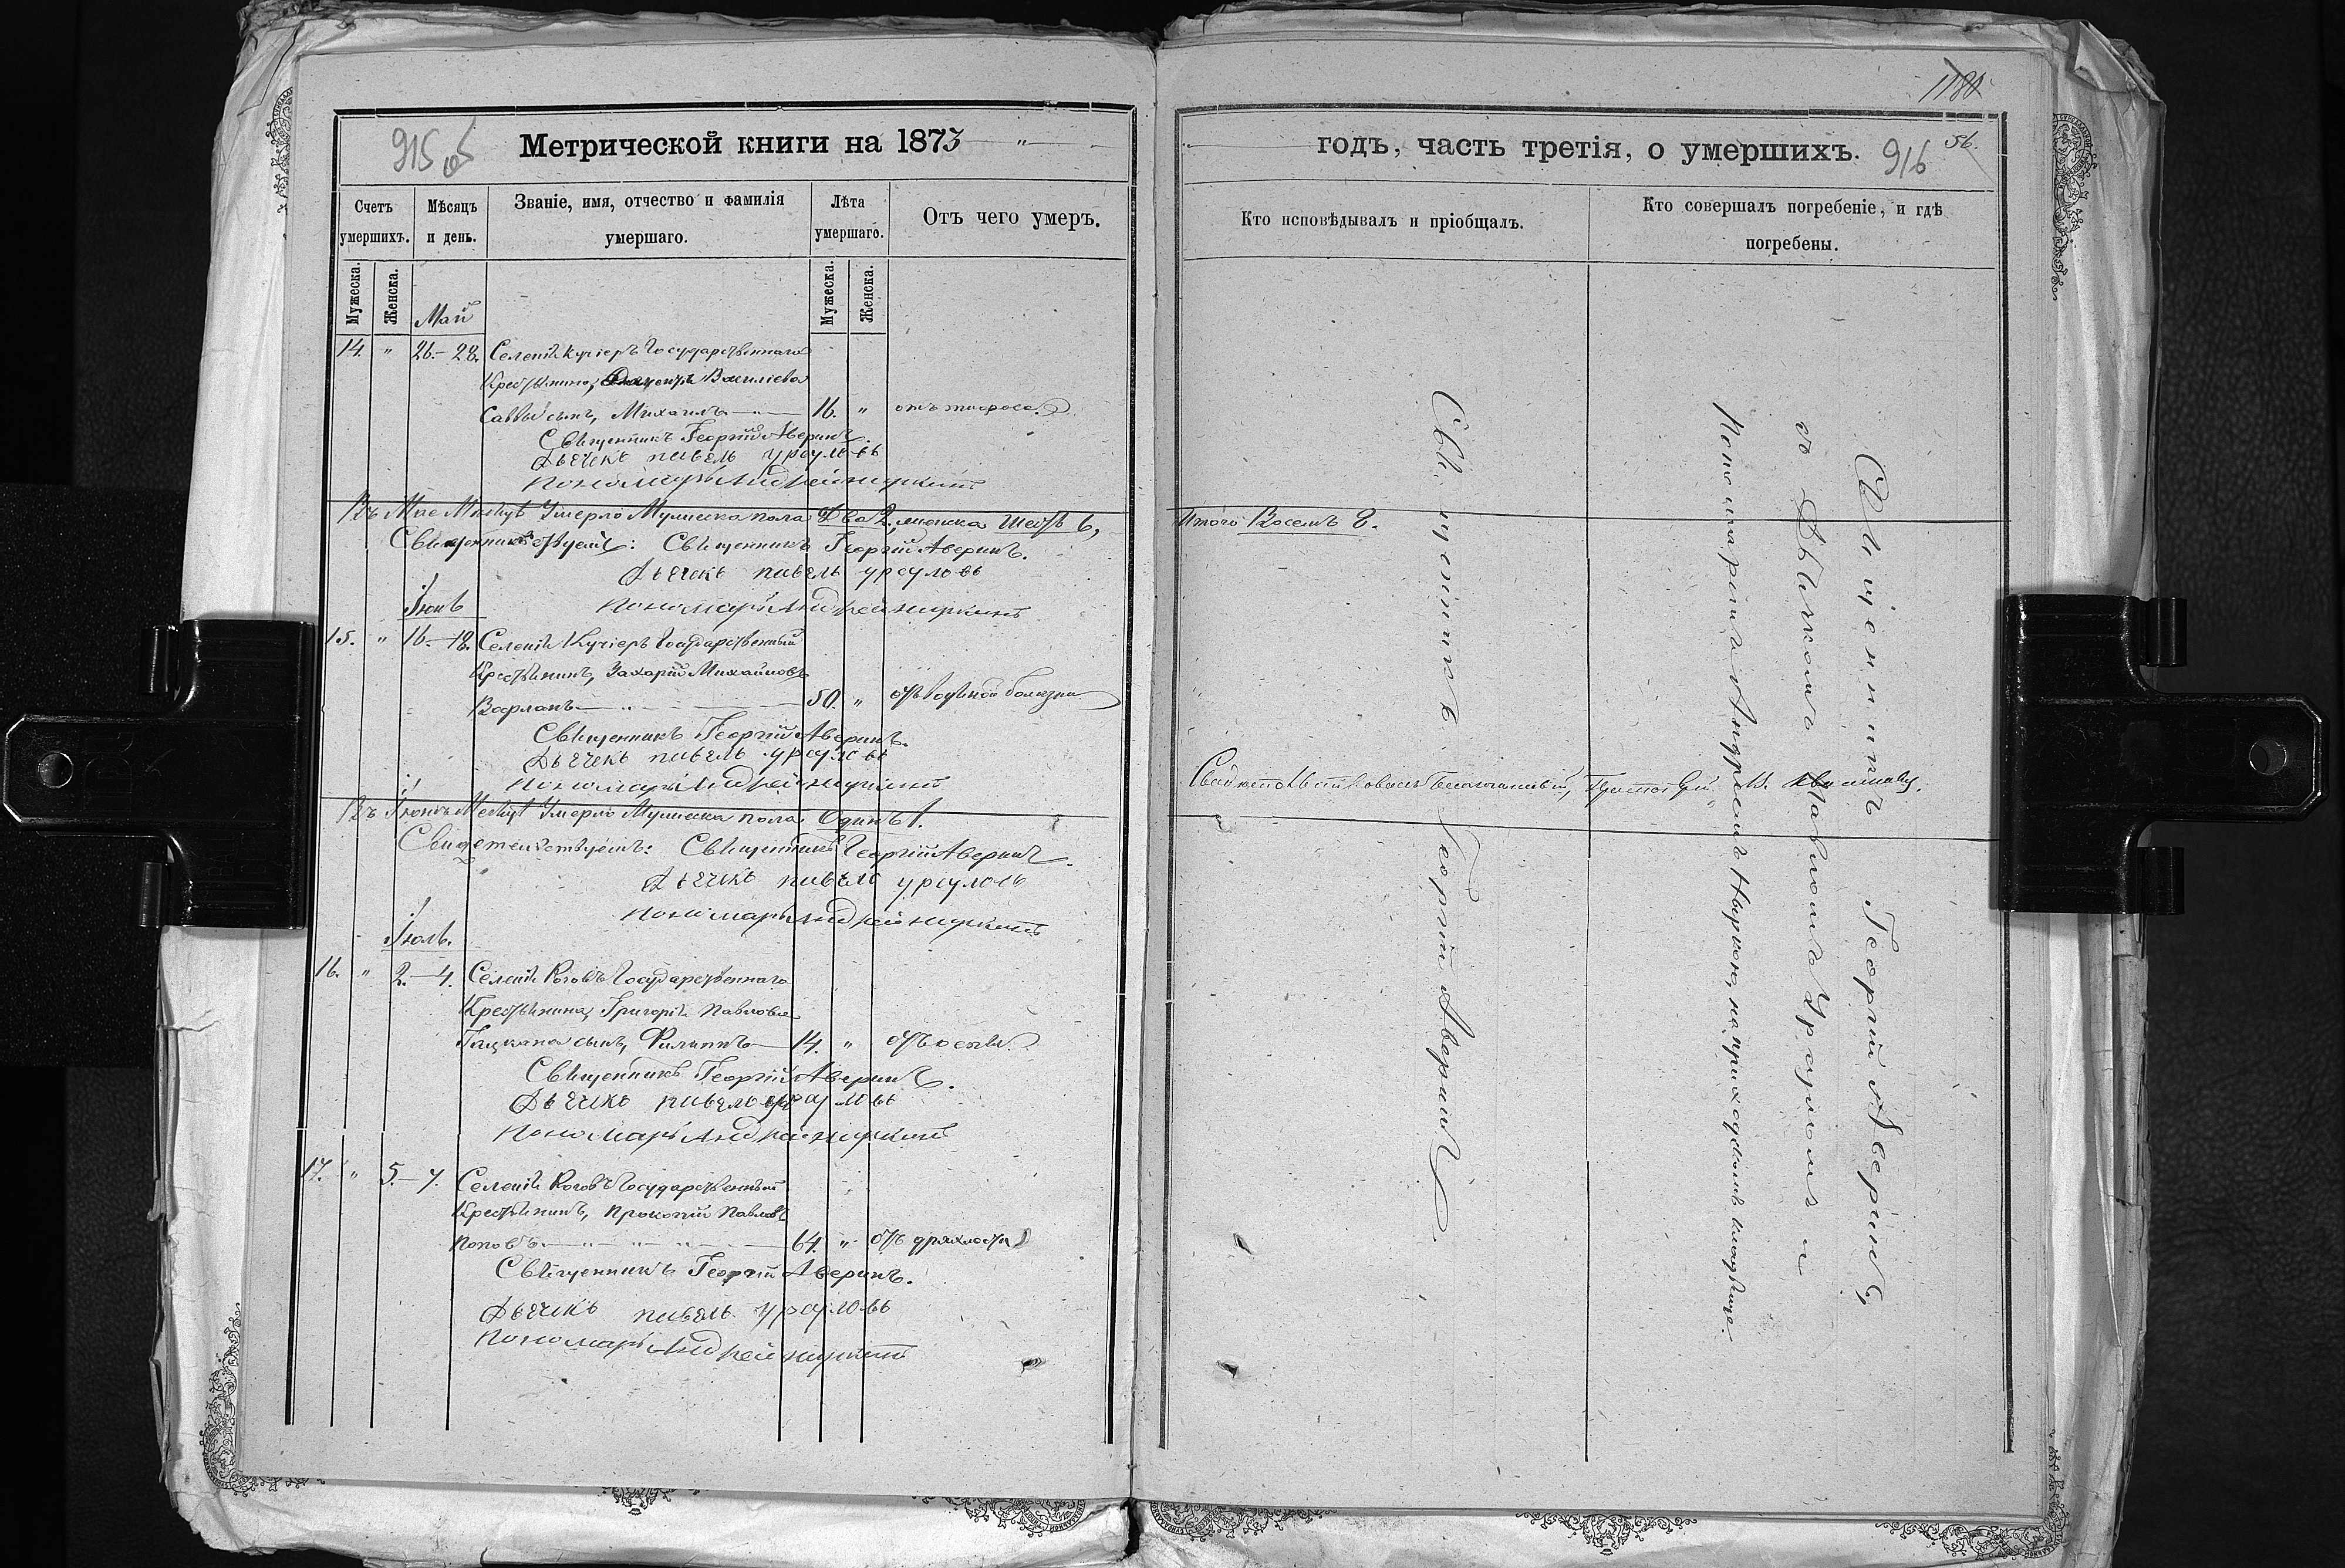 915 об
Метрической книги на 1873 "
Счетъ умершихъ.
Мѣсяцъ и день.
Званіе, имя, отчество и фамилія умершаго.
Лѣта умершаго.
Отъ чего умеръ.
Мужеска.
Женска.
Май
Мужеска.
Женска.
14. " 26.-28. Селенія Кучіеръ Государственнаго
Крестьянина, Василіева
Саввы сынъ, Михаилъ 16. " отъ тифоса.
Священникъ Георгій Аверинъ.
Дьячекъ Павелъ Урсуловъ
Пономарь Андрей Нуркинъ
Въ Мае Месяцѣ Умерло Мужеска пола Два 2, женска Шесть 6,
Священникъ Георгій Аверинъ.
Дьячекъ Павелъ Урсуловъ
Іюнь
Пономарь Андрей Нуркинъ
15. " 16.-18. Селенія Кучіеръ Государственный
Крестьянинъ, Захарій Михайловъ
Варланъ 50. " отъ водяной болезни
Священникъ Георгій Аверинъ.
Дьячекъ Павелъ Урсуловъ
Пономарь Андрей Нуркинъ
Въ Іюнѣ Месяцѣ Умерло Мужеска пола Одинъ 1.
Свидетельствуемъ: Священникъ Георгій Аверинъ.
Дьячекъ Павелъ Урсуловъ
Пономарь Андрей Нуркинъ
Іюль.
16. " 2.-4. Селенія Роговъ Государственнаго
Крестьянина, Григорія Павлова
Гацкана сынъ, Филиппъ 14. " отъ оспы.
Священникъ Георгій Аверинъ.
Дьячекъ Павелъ Урсуловъ
Пономарь Андрей Нуркинъ
17. " 5.-7. Селенія Роговъ Государственный
Крестьянинъ, Прокопій Павловъ
Поповъ 64. " отъ дряхлости
Священникъ Георгій Аверинъ.
Дьячекъ Павелъ Урсуловъ
Пономарь Андрей Нуркинъ
1180
годъ, часть третія, о умершихъ.
916
56.
Кто исповѣдывалъ и пріобщалъ.
Кто совершалъ погребеніе, и гдѣ погребены.
Итого Восемь 8.
Священникъ Георгій Аверинъ
Священникъ Георгій Аверинъ,
съ Дьячкомъ Павломъ Урсуломъ и
Пономаремъ Андреемъ Нуркон, на приходскомъ кладбище.